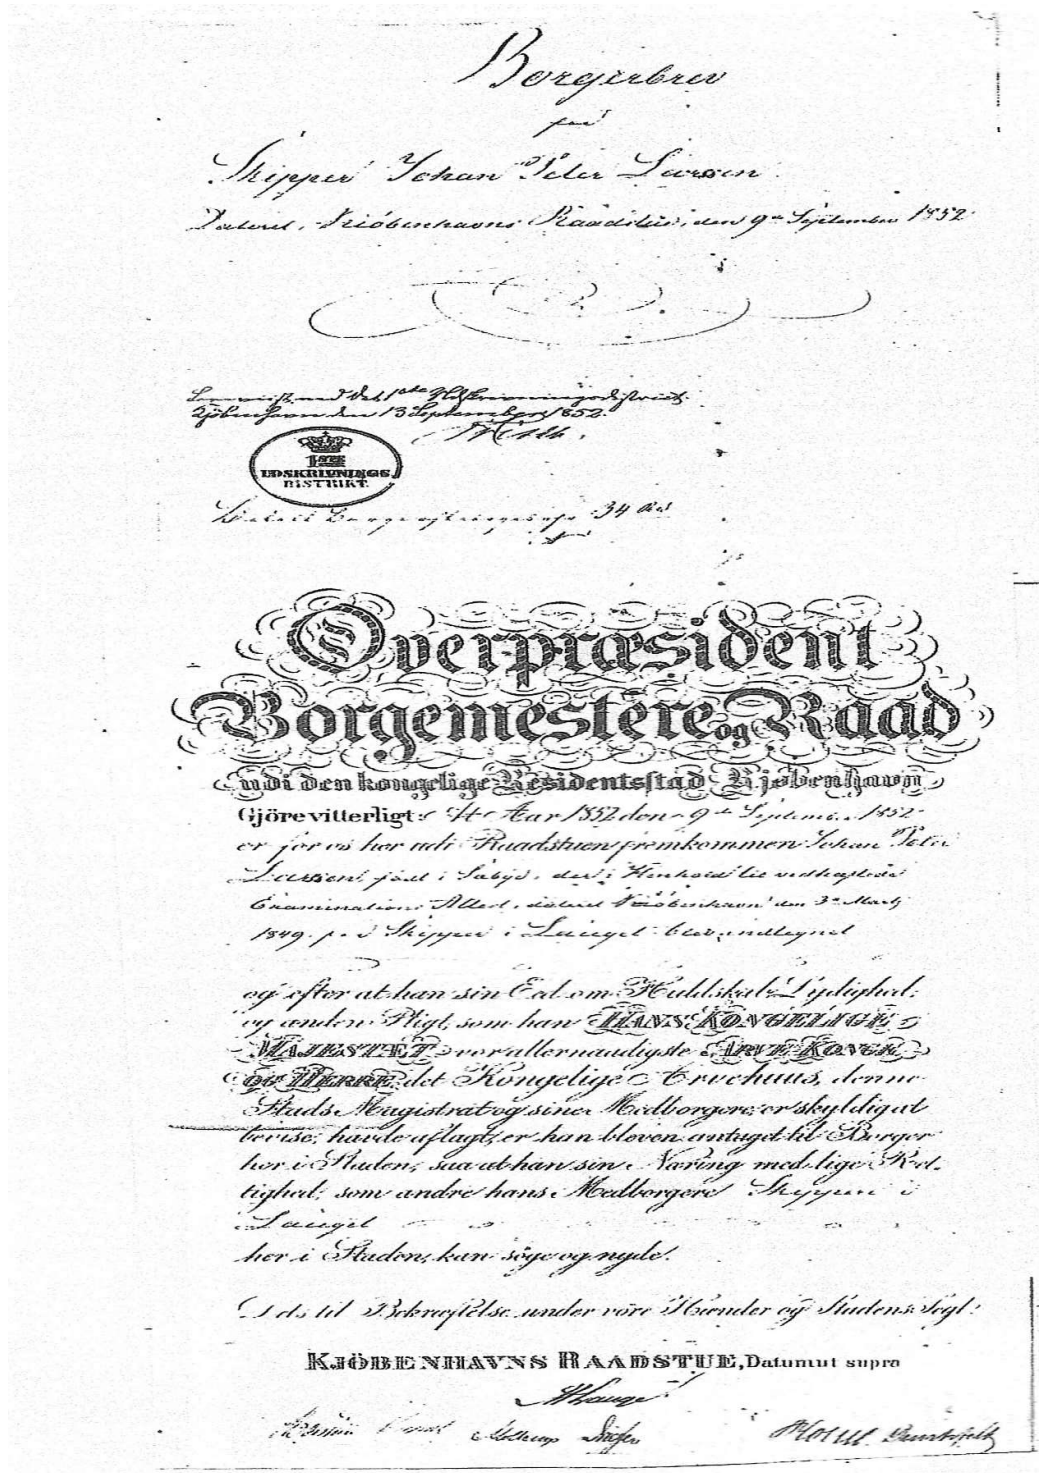 Borgerbrev
for
Skipper Johan Peter Larsen
Dateret, Kiöbenhavns Raadstue, den 9de September 1852
med det 1ste Udskrivningsdistrict
Kjöbenhavn den 13 September 1852.
1STE
UDSKRIVNINGS
DISTRIKT
34
Overpræsident
Borgemestere og Raad
udi den kongelige Residentsstad Kjøbenhavn
Gjöre vitterligt: At Aar 1852 den 9de Septembr. 1852
er for os her udi Raadstuen fremkommen Johan Peter
Larsen, född i Sæbye, der i Henhold til vedhæftede
Examinations Attest, dateret Kiöbenhavn den 3die Marts
1849. Skipper i Lauget blev indtegnet
og efter at han sin Eed om Huldskab, Lydighed,
og anden Pligt, som han HANS KONGELIGE
MAJESTÆT vor allernaadigste ARVE KONGE
OG HERRE, det Kongelige Arvehuus, denne
Stads Magistrat og sine Medborgere er skyldig at
bevise, havde aflagt, er han bleven antaget til Borger
her i Staden, saa at han sin Næring med lige Ret-
tighed, som andre hans Medborgere Skipper i
Lauget
her i Staden, kan söge og nyde.
Dets til Bekræftelse under vore Hænder og Stadens Segl.
KJÖBENHAVNS RAADSTUE, Datum ut supra
Lange